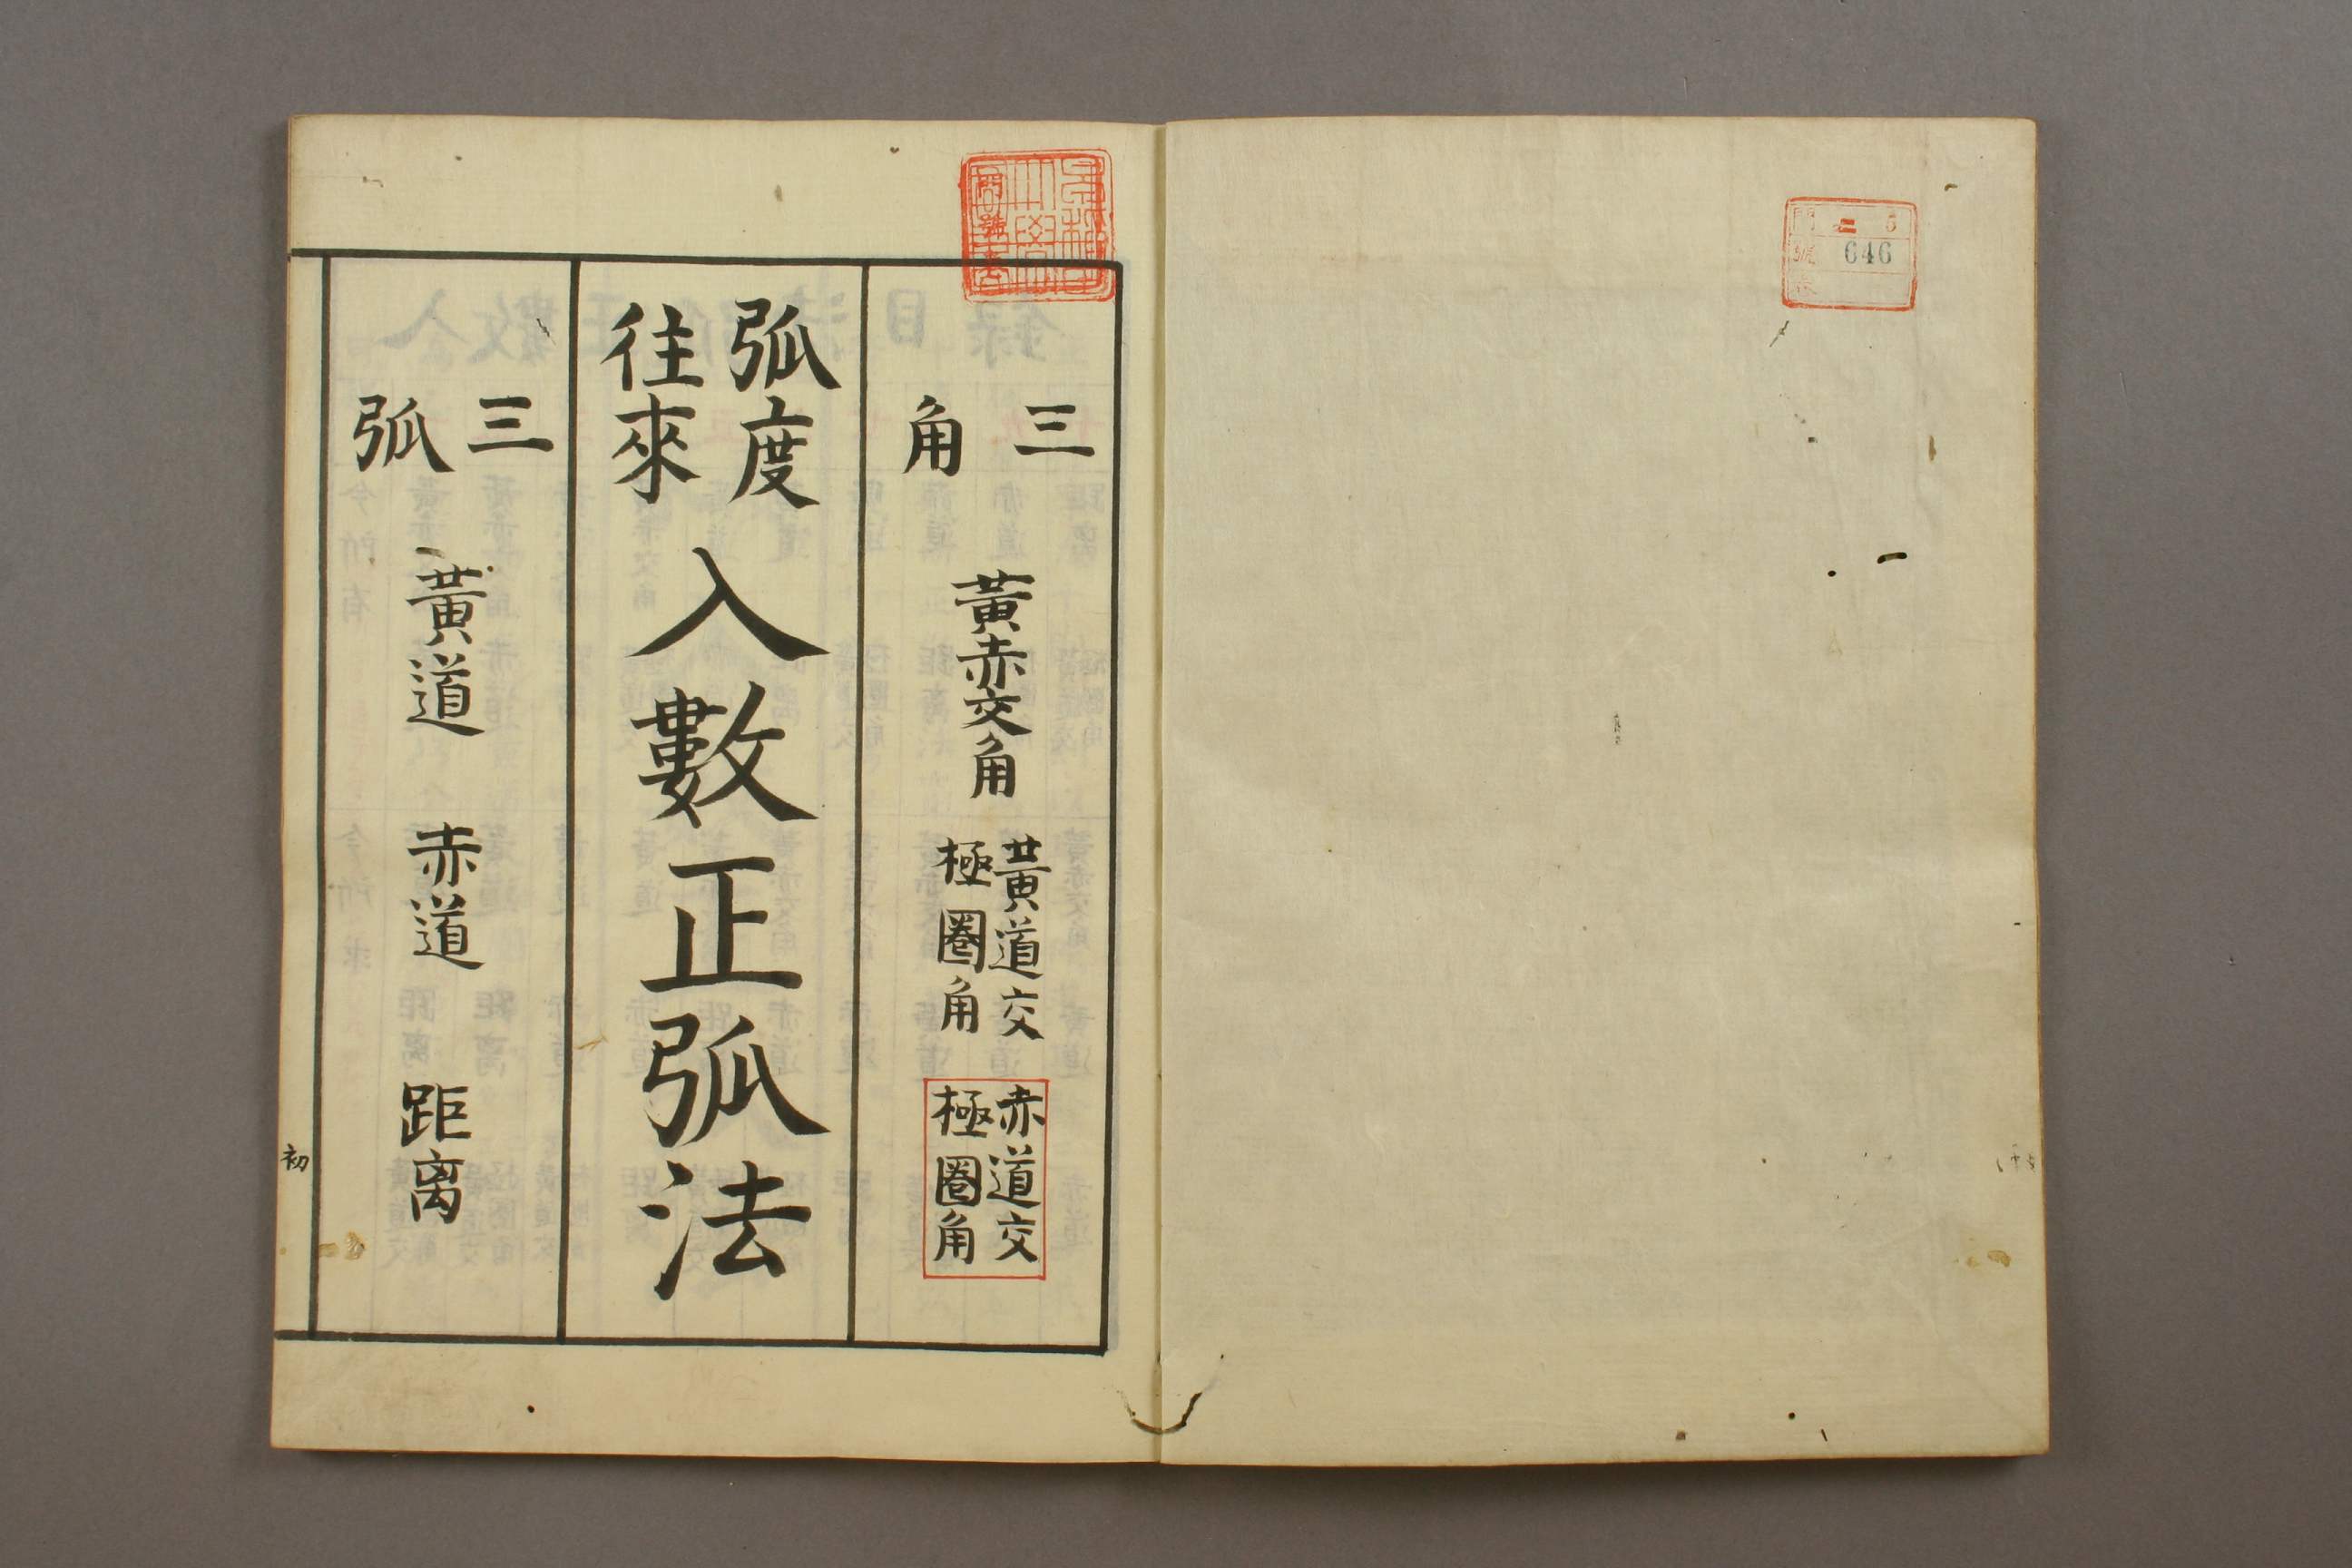 門 二 6
號 646
三角
黃赤交角
黃道交
極圈角
赤道交
極圈角
弧度
往來
入數正弧法
三弧
黃道
赤道
距离
初